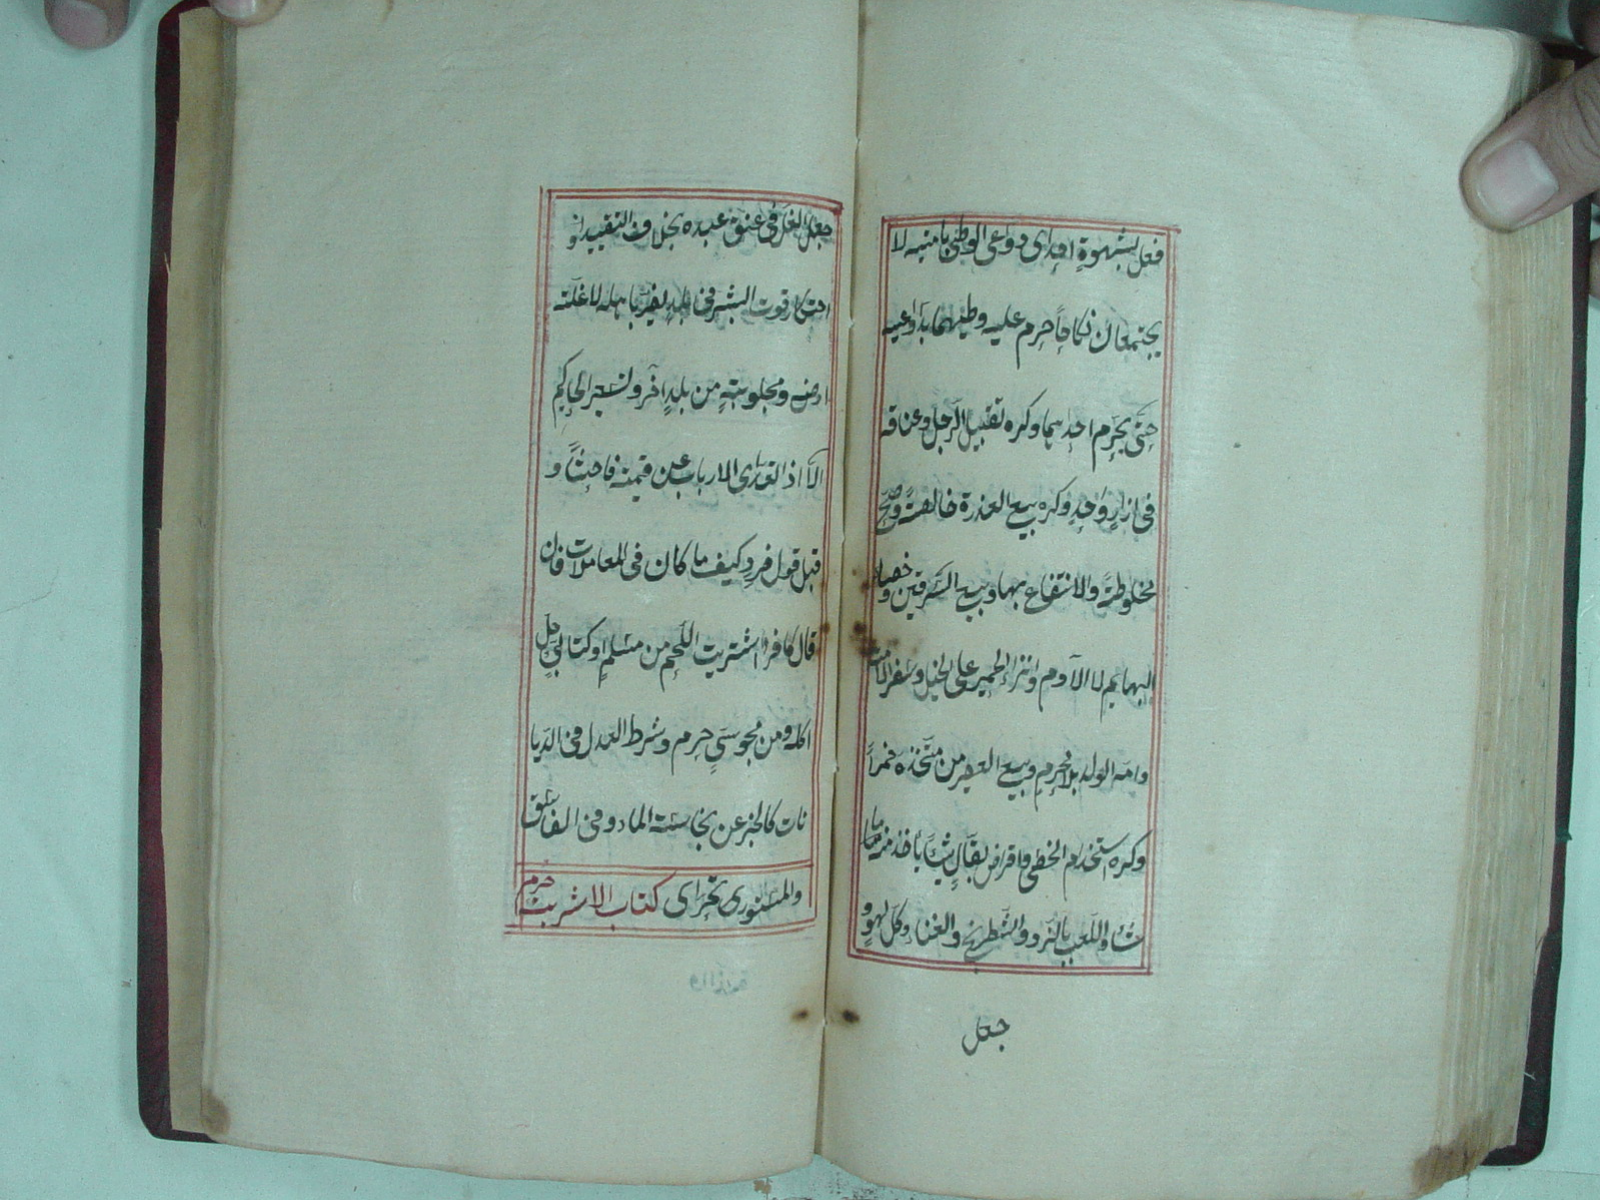 فعل بشهوة احدى دواعى الوطى بامتيه لا
يجتمعان نكاحاً حرم عليه وطيهما بدواعيه
حتى يحرم احدٰهما وكره تقبيل الرجل وعناقه
فى ازارٍ واحدٍ وكره بيع العذرة خالصةً وصح
مخلوطةً والانتفاع بها وبيع السرقين وخصاء
البهايم لا الآدم وانزاء الحمير على الخيل وسفر الامة
وامه الولد بلا محرم وبيع العصير من متخذه خمراً
وكره استخدام الخصى واقراض بقالٍ شيئاً ياخذ منه ما
شاء واللعب بالنرد والشطرنج والغناء وكل لهوٍ و
جعل
جعل الغل فى عنق عبده بخلاف التقييد و
احتكار قوت البشر فى بلدٍ يضر باهله لا غلة
ارضه ومجلوبته من بلدٍ آخر ولتسعير الحاكم
الّا اذا تعدى الارباب عن قيمته فاحشاً و
قبل قول فردٍ كيف ما كان فى المعاملات فان
قال كافر اشتريت اللحم من مسلمٍ او كتابىٍ حل
اكله ومن مجوسىٍ حرم وشرط العدل فى الديا
نات كالخبر عن نجاسة الماء وفى الفاسق
والمستورى تحراى كتاب الاشربة حرم